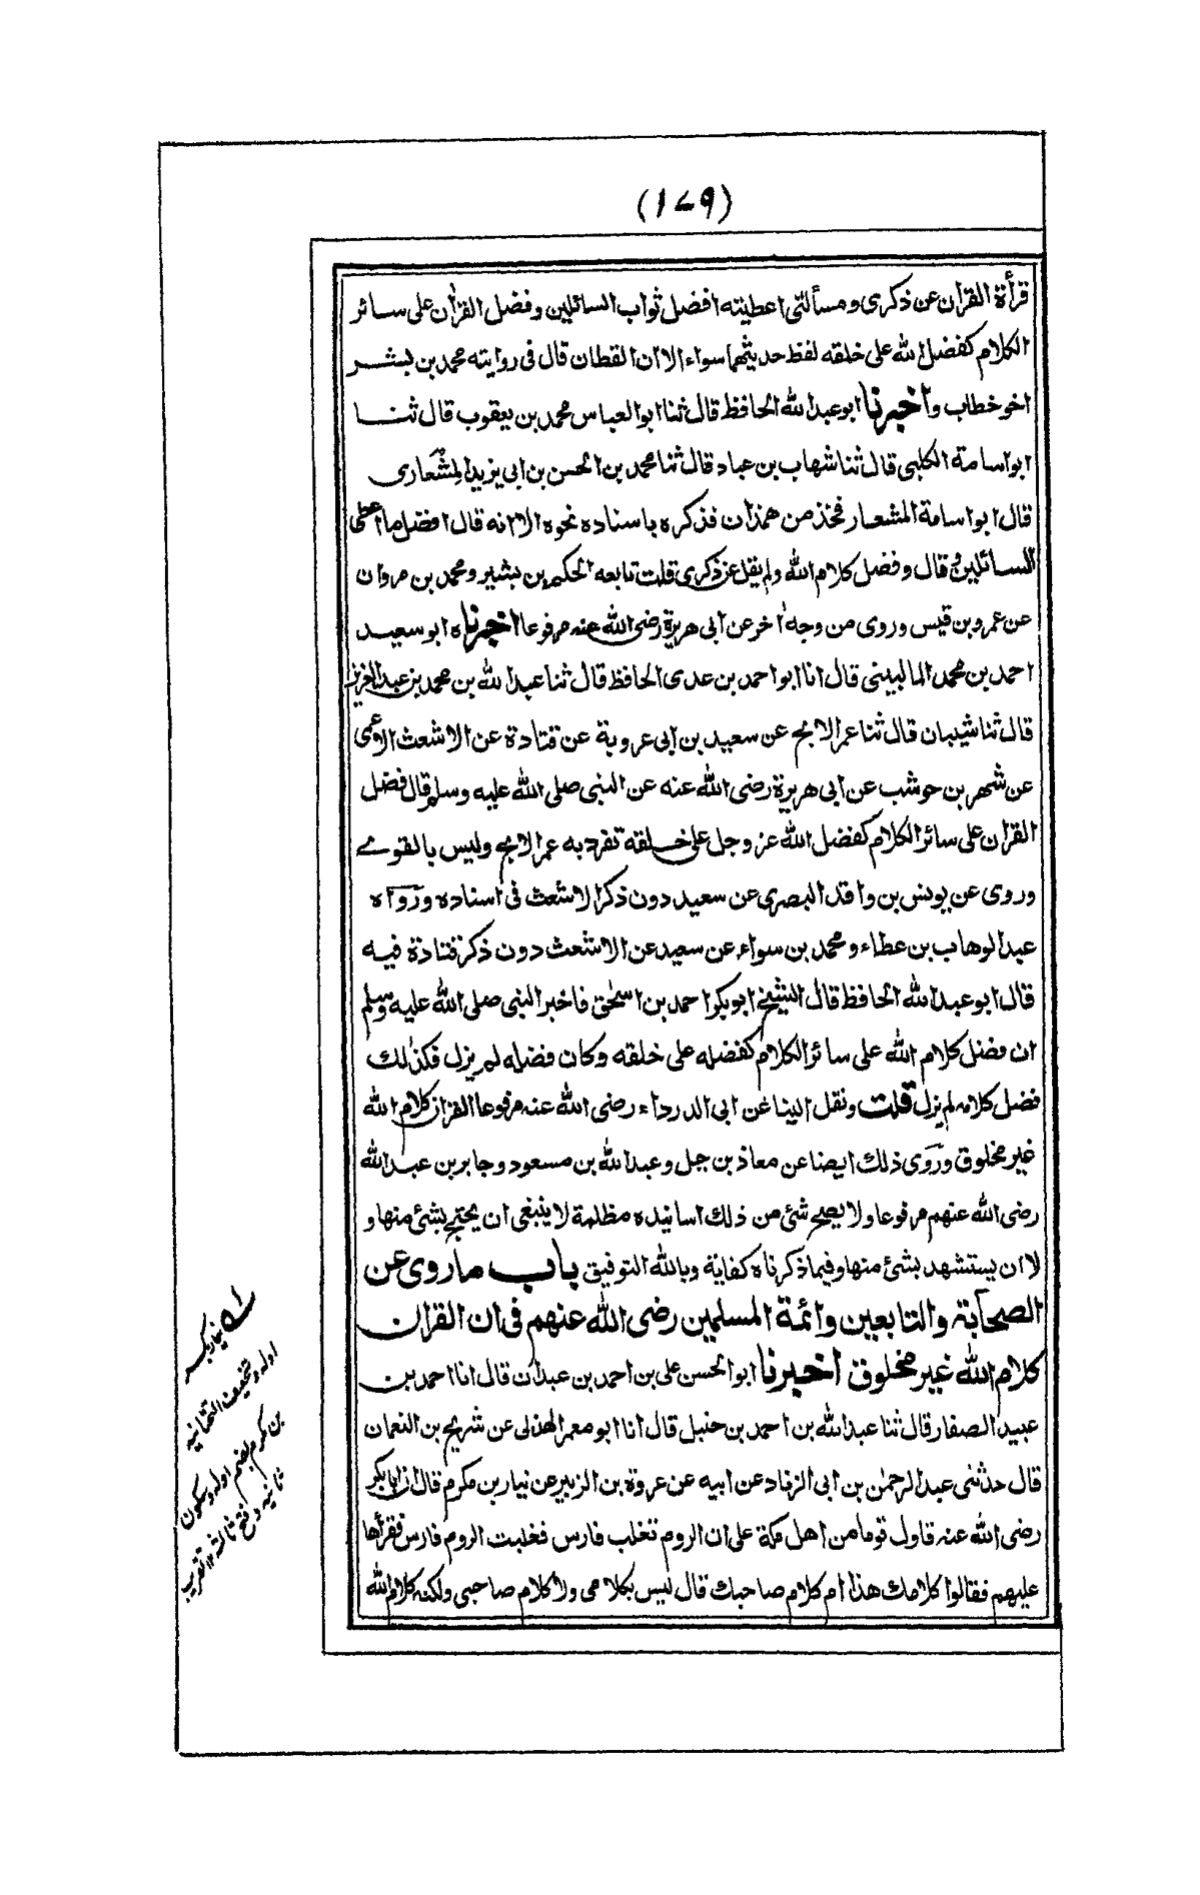 (١٧٩)
قرأة القران عن ذكرى ومسألتى اعطيته افضل ثواب السائلين وفضل القران على سائر
الكلام كفضل الله على خلقه لفظ حديثهما سواء الا ان القطان قال فى روايته محمد بن بشر
اخو خطاب واخبرنا ابو عبد الله الحافظ قال ثنا ابو العباس محمد بن يعقوب قال ثنا
ابو اسامة الكلبى قال ثنا شهاب بن عباد قال ثنا محمد بن الحسن بن ابى يزيد المشعارى
قال ابو اسامة المشعار فخذ من همذان فذكره باسناده نحوه الا انه قال افضل ما اعطى
السائلين وقال وفضل كلام الله ولم يقل عن ذكرى قلت تابعه الحكيم بن بشير ومحمد بن مروان
عن عمرو بن قيس وروى من وجه اخر عن ابى هريرة رضى الله عنه مرفوعا اخبرناه ابو سعيد
احمد بن محمد المالينى قال انا ابو احمد بن عدى الحافظ قال ثنا عبد الله بن محمد بن عبد العزيز
قال ثنا شيبان قال ثنا عمر الابح عن سعيد بن ابى عروبة عن قتادة عن الاشعث الاعمى
عن شهر بن حوشب عن ابى هريرة رضى الله عنه عن النبى صلى الله عليه وسلم قال فضل
القران على سائر الكلام كفضل الله عز وجل على خلقه تفرد به عمر الابح وليس بالقوى
وروى عن يونس بن واقد البصرى عن سعيد دون ذكر الاشعث فى اسناده ورواه
عبد الوهاب بن عطاء ومحمد بن سواء عن سعيد عن الاشعث دون ذكر قتادة فيه
قال ابو عبد الله الحافظ قال الشيخ ابو بكر احمد بن اسحق فاخبر النبى صلى الله عليه وسلم
ان فضل كلام الله على سائر الكلام كفضله على خلقه وكان فضله لم يزل فكذلك
فضل كلامه لم يزل قلت ونقل الينا عن ابى الدرداء رضى الله عنه مرفوعا القران كلام الله
غير مخلوق وروى ذلك ايضا عن معاذ بن جبل وعبد الله بن مسعود وجابر بن عبد الله
رضى الله عنهم مرفوعا ولا يصح شئ من ذلك اسانيده مظلمة لا ينبغى ان يحتج بشئ منها و
لا ان يستشهد بشئ منها وفيما ذكرناه كفاية وبالله التوفيق باب ما روى عن
الصحابة والتابعين وائمة المسلمين رضى الله عنهم فى ان القران
كلام الله غير مخلوق اخبرنا ابو الحسن على بن احمد بن عبدان قال انا احمد بن
عبيد الصفار قال ثنا عبد الله بن احمد بن حنبل قال انا ابو معمر الهذلى عن شريح بن النعمان
قال حدثنى عبد الرحمن بن ابى الزناد عن ابيه عن عروة بن الزبير عن نيار بن مكرم قال ان ابا بكر
رضى الله عنه قاول قوما من اهل مكة على ان الروم تغلب فارس فغلبت الروم فارس فقرأها
عليهم فقالوا كلامك هذا ام كلام صاحبك قال ليس بكلامى ولا كلام صاحبى ولكنه كلام الله
نيار بكسر
اوله وتخفيف التحتانيه
بن مكرم بضم اوله وسكون
ثانيه وفتح ثالثه تقريب